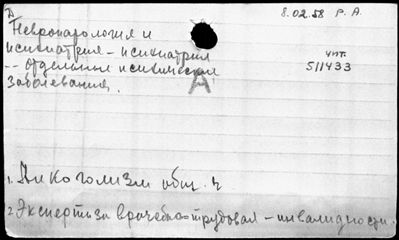 8.02.58 Р. А.
Невропатология и
психиатрия – психиатрия
-- отдельные психические
заболевания.
чит.
511433
А
1. Алкоголизм общ. ч
2 Экспертиза врачебно-трудовая – инвалидности.